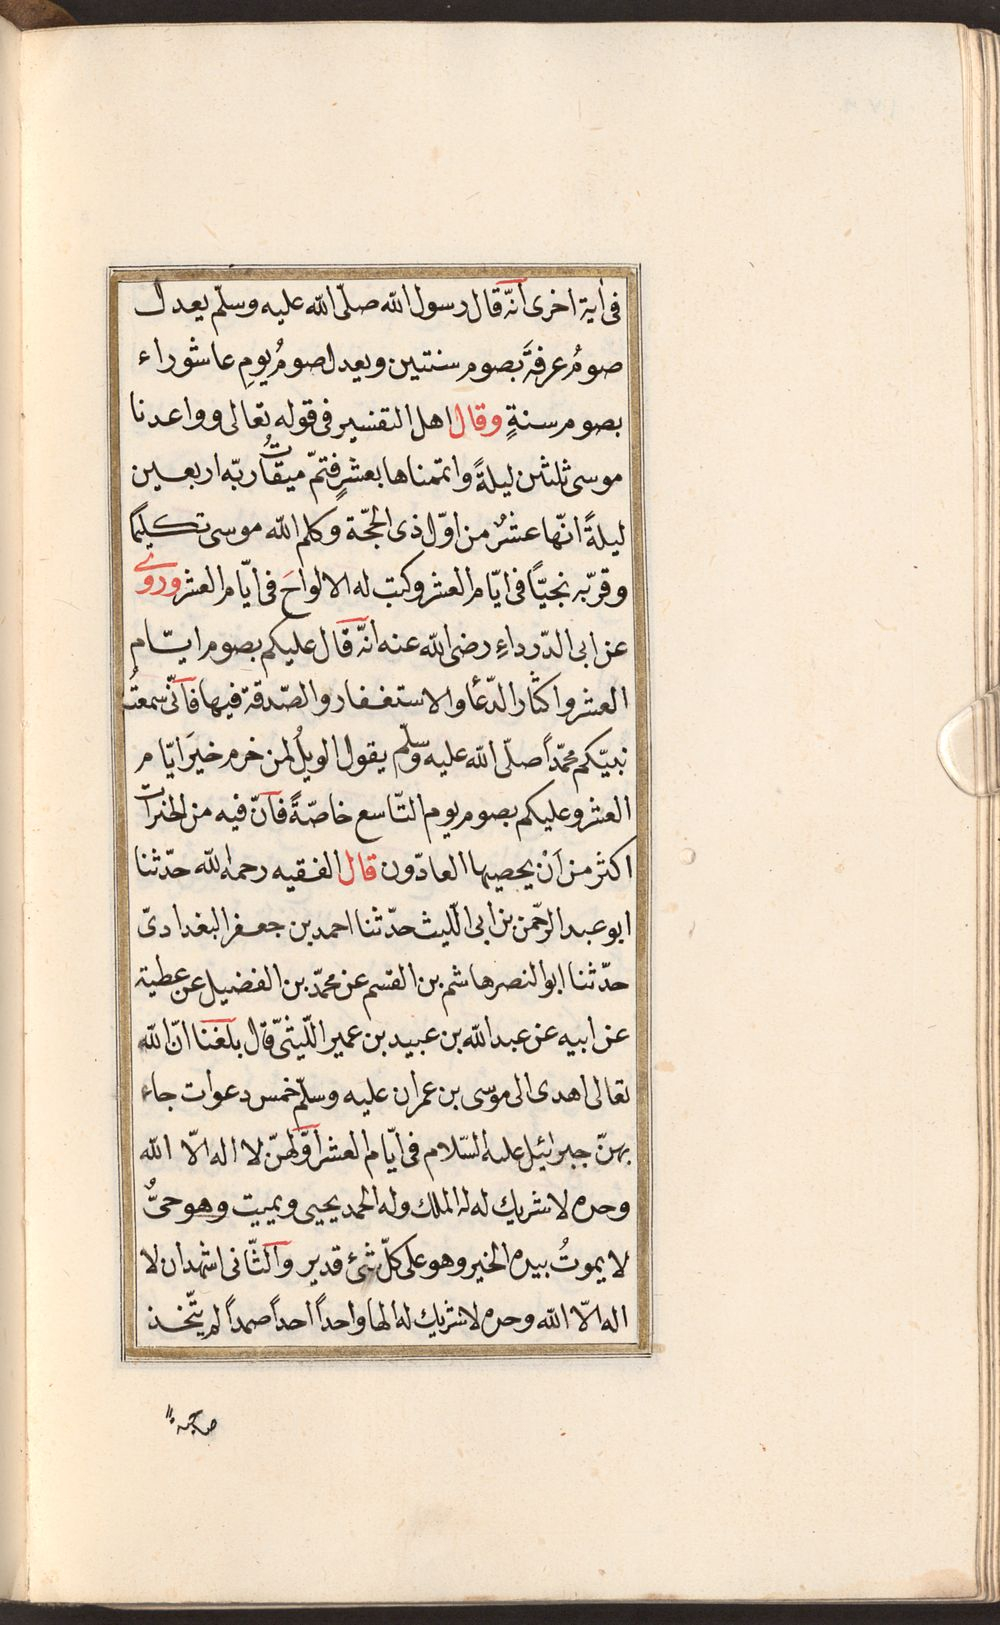 فى اية اخرى انّه قال رسول الله صلّى الله عليه وسلّم يعدل
صومُ عرفةَ بصوم سنتين ويعدل صومُ يومِ عاشوراء
بصوم سنةٍ وقال اهل التفسير فى قوله تعالى وواعدنا
موسى ثلثين ليلةً واتممناها بعشرٍ فتمّ ميقاتُ ربّه اربعين
ليلةً انّها عشرٌ من اوّل ذى الحجّة وكلم الله موسى تكليمًا
وقربّه نجيّاً فى ايّام العشر وكتب له الالواحَ فى ايّام العشر وروى
عن ابى الدّرداءِ رضى الله عنه انّه قال عليكم بصوم ايّام
العشر واكثار الدّعأ والاستغفار والصّدقة فيها فانّى سمعتُ
نبيّكم محمّداً صلّى الله عليه وسلّم يقول الويلُ لمن خرم خيرَ ايّام
العشر وعليكم بصوم يوم التّاسع خاصّةً فانّ فيه من الخيرات
اكثر من اَنْ يحصيها العادّون قال الفقيه رحمه الله حدّثنا
ابو عبد الرّحمن بن ابى اللّيث حدّثنا احمد بن جعفر البغدادىّ
حدّثنا ابو النصر هاشم بن القسم عن محمّد بن الفضيل عن عطية
عن ابيه عن عبد الله بن عبيد بن عمير اللّيثىّ قال بلغنا انّ الله
تعالى اهدى الى موسى بن عمران عليه وسلّم خمس دعوات جاء
بهنّ جبرائيل عليه السّلام فى ايّام العشر اوّلهنّ لا اله الاّ الله
وحده لا شريك له له الملك وله الحمد يحيى ويميت وهو حىٌّ
لا يموتُ بيده الخير وهو على كلّ شئ قدير والثّانى اشهد ان لا
اله الاّ الله وحده لا شريك له الها واحداً احداً صمداً لم يتّخذ
صاحبةً